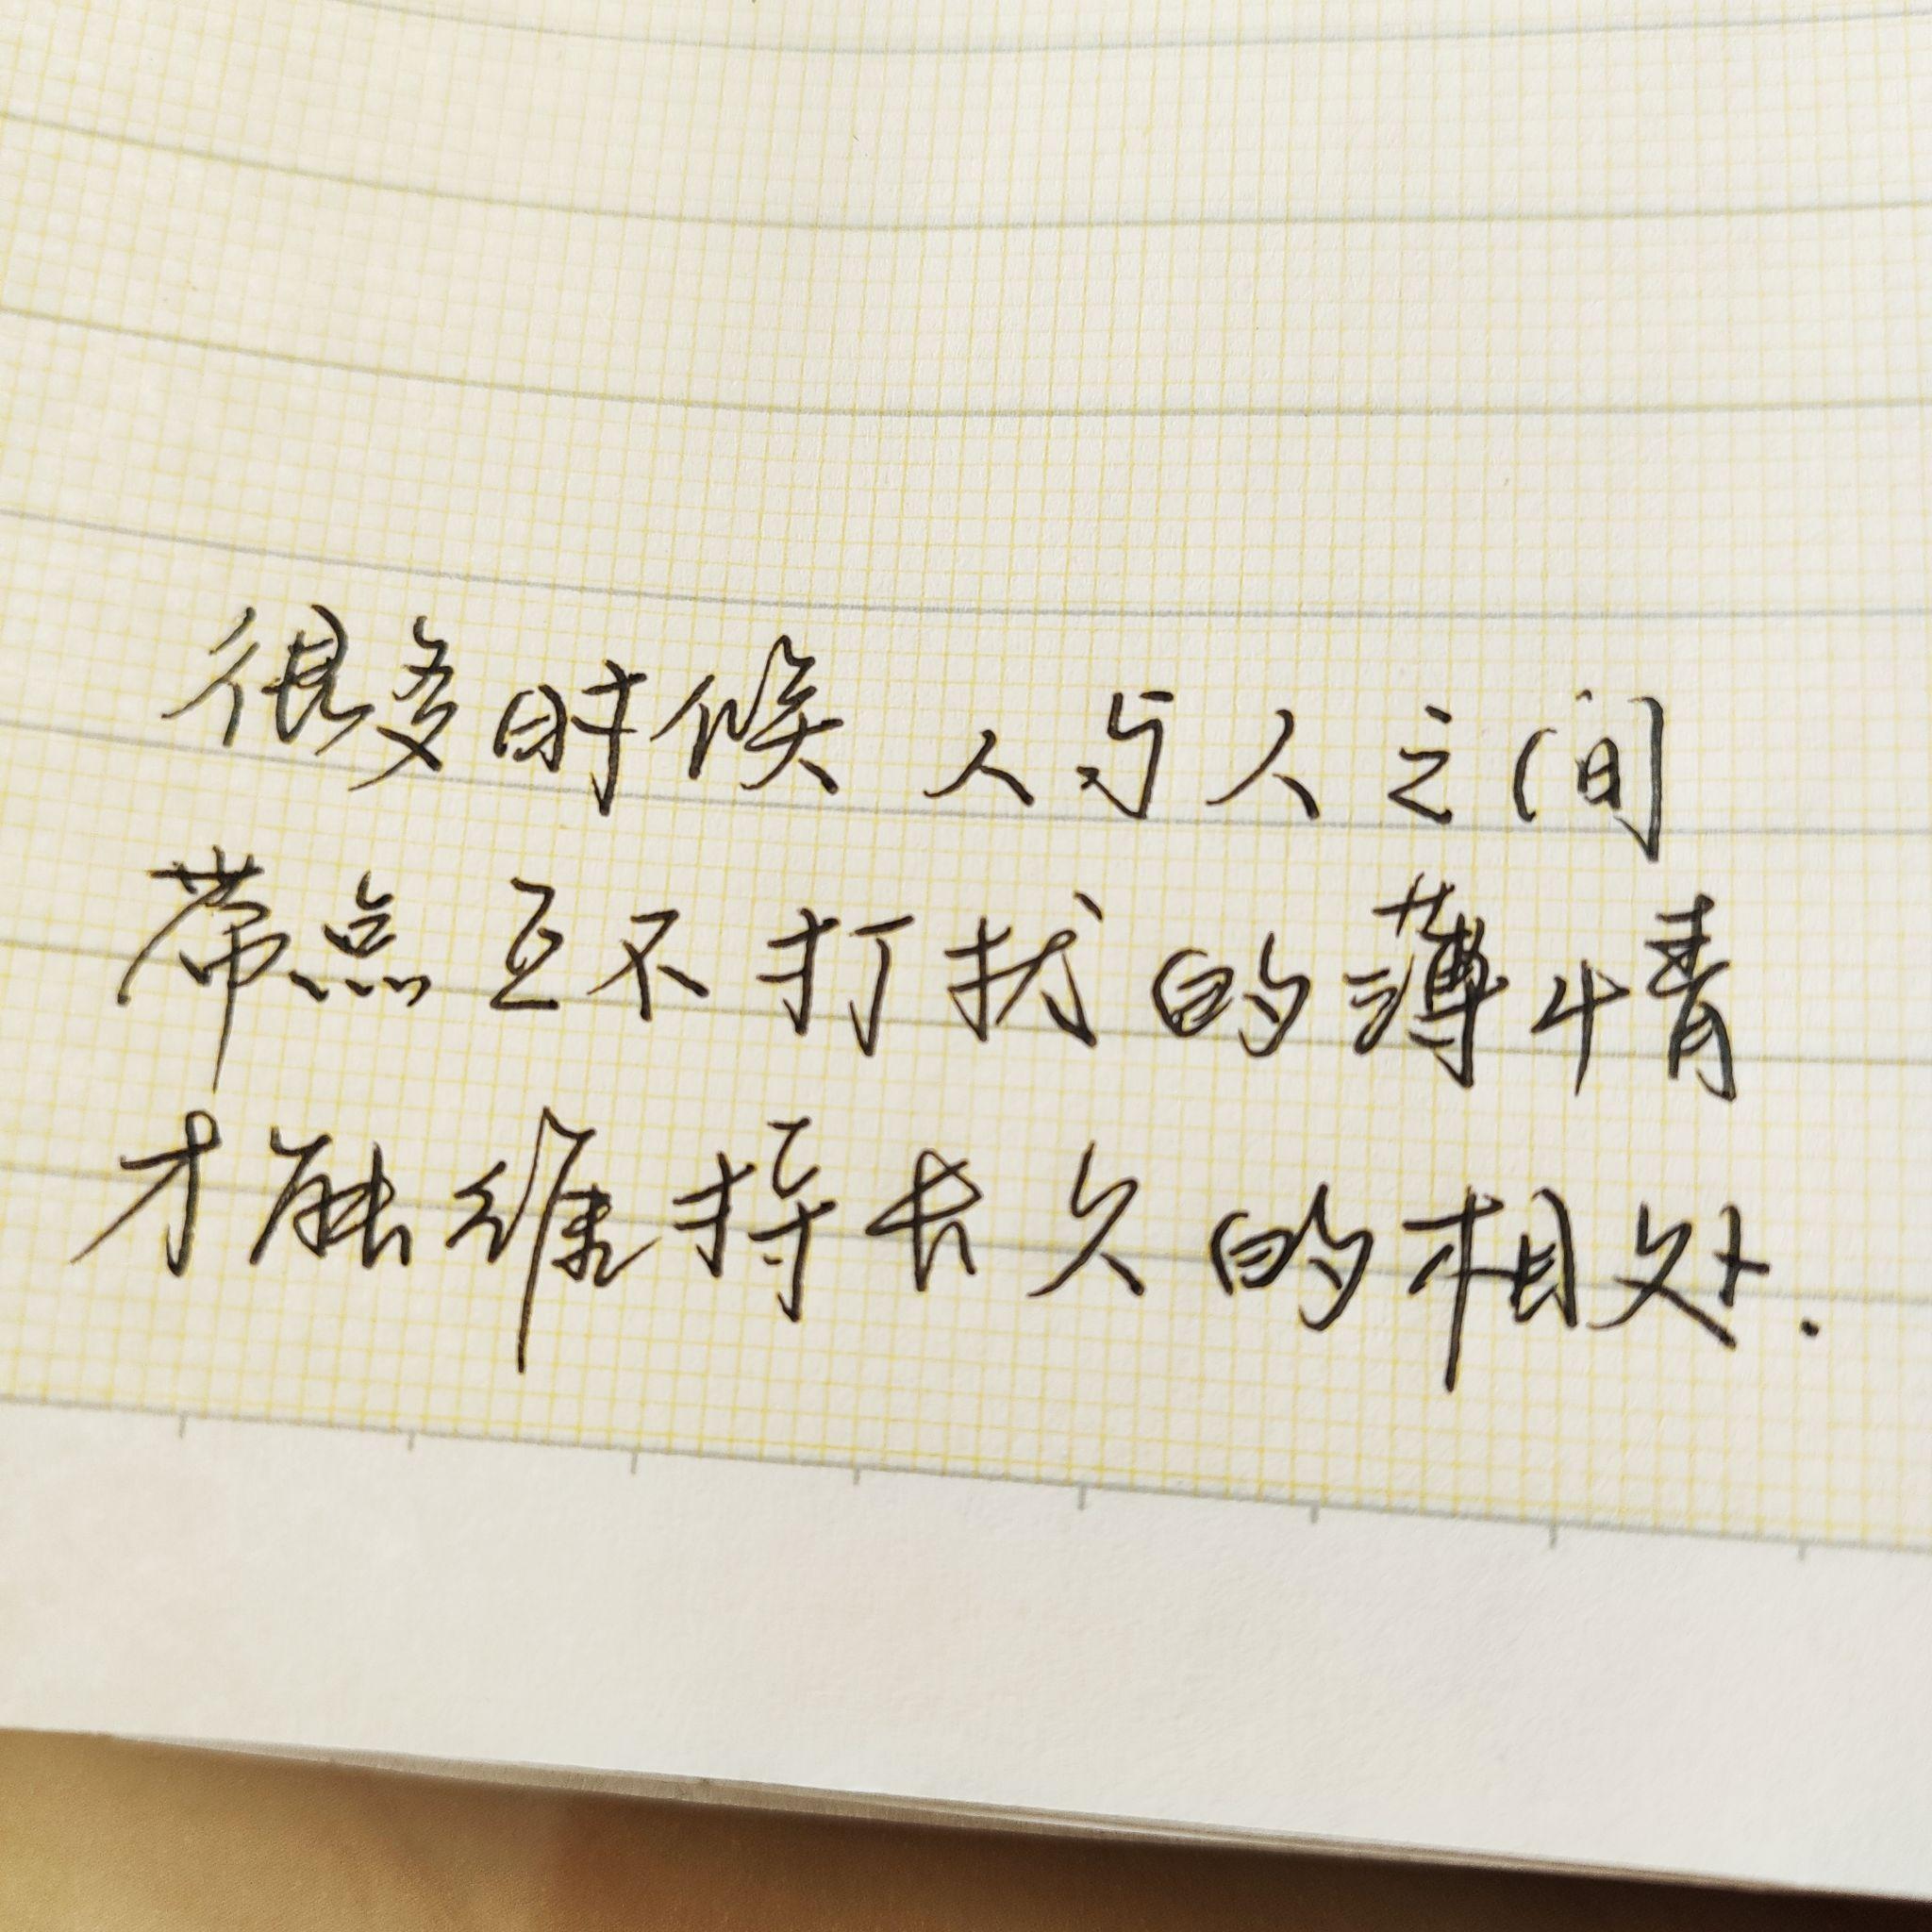 很多时候 人与人之间
带点互不打扰的薄情
才能维持长久的相处.